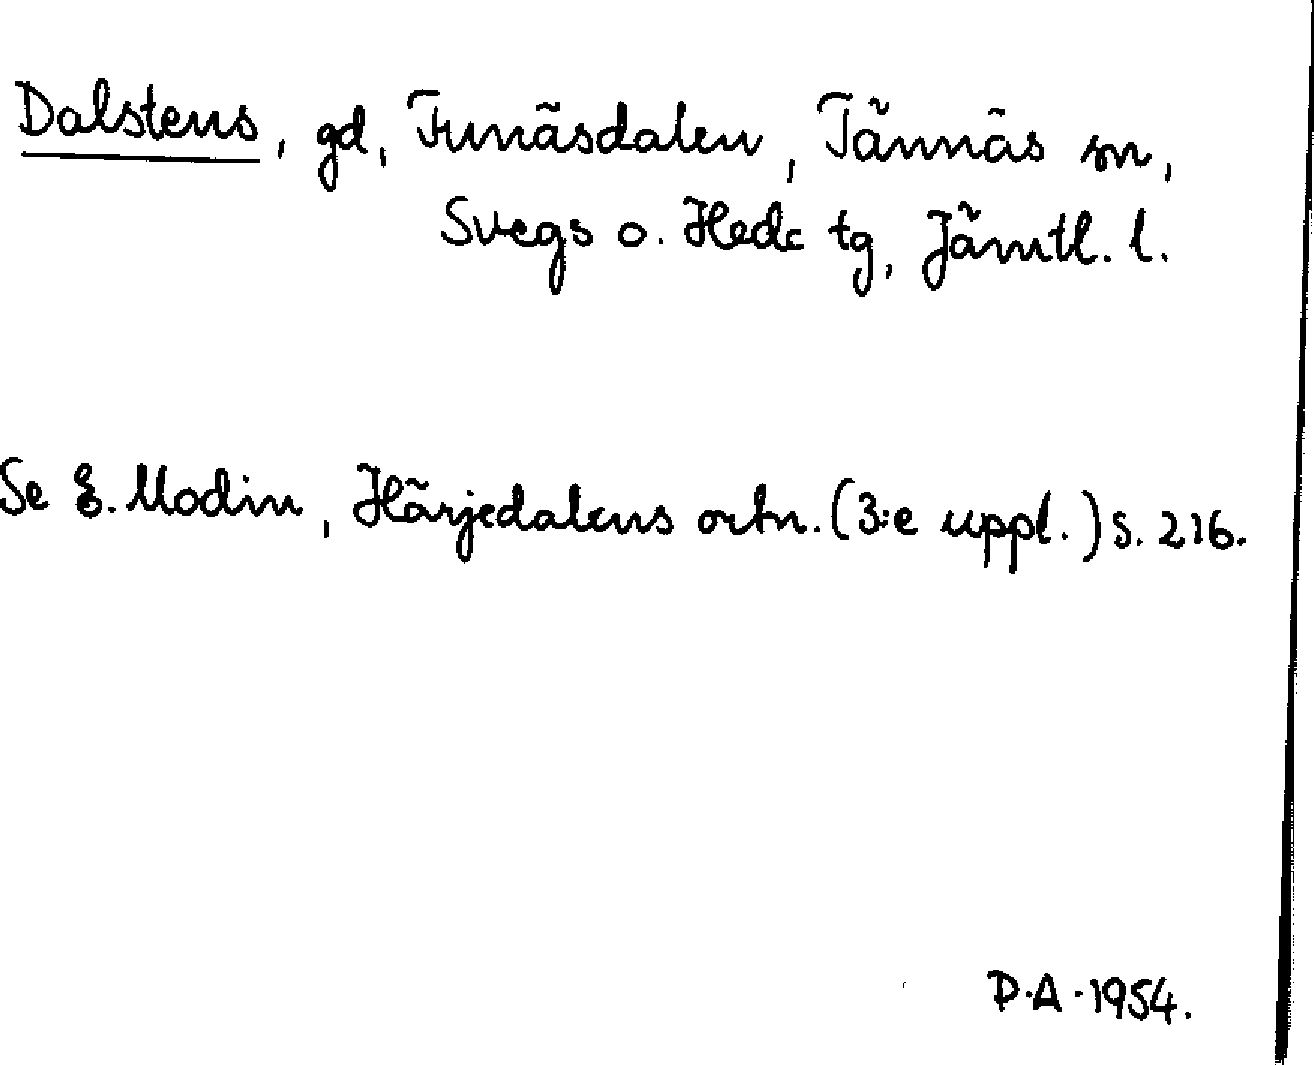 Dalstens, gd, Funäsdalen, Tännäs sn,
Svegs o. Hede tg, Jämtl. l.
Se E. Modin, Härjedalens ortn. (3:e uppl.) s. 216.
D.A. 1954.